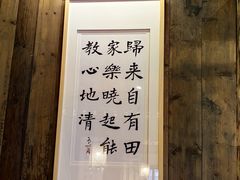 歸来自有田
家樂曉起能
教心地清